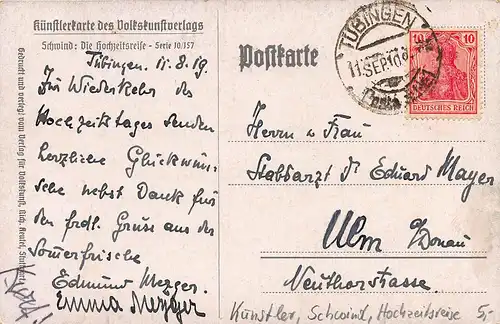 Künstlerkarte des Volkskunstverlags
Schwind: Die Hochzeitsreise - Serie 10/157
Tübingen 11. 8. 19.
Zur Wiederkehr des
Hochzeitstages senden
herzliche Glückwün-
sche nebst Dank für
den frdl. Gruss aus der
Sommerfrische
Edmund Mezger.
Emma Mezger
Gedruckt und verlegt vom Verlag für Volkskunst, Rich. Keutel, Stuttgart
Postkarte
TÜBINGEN
11.SEP.10
10
10
DEUTSCHES REICH
Herrn u Frau
Stabsarzt Dr Eduard Mayer
Ulm a/Donau
Neuthorstrasse.
Künstler, Schwind, Hochzeitsreise 5,-